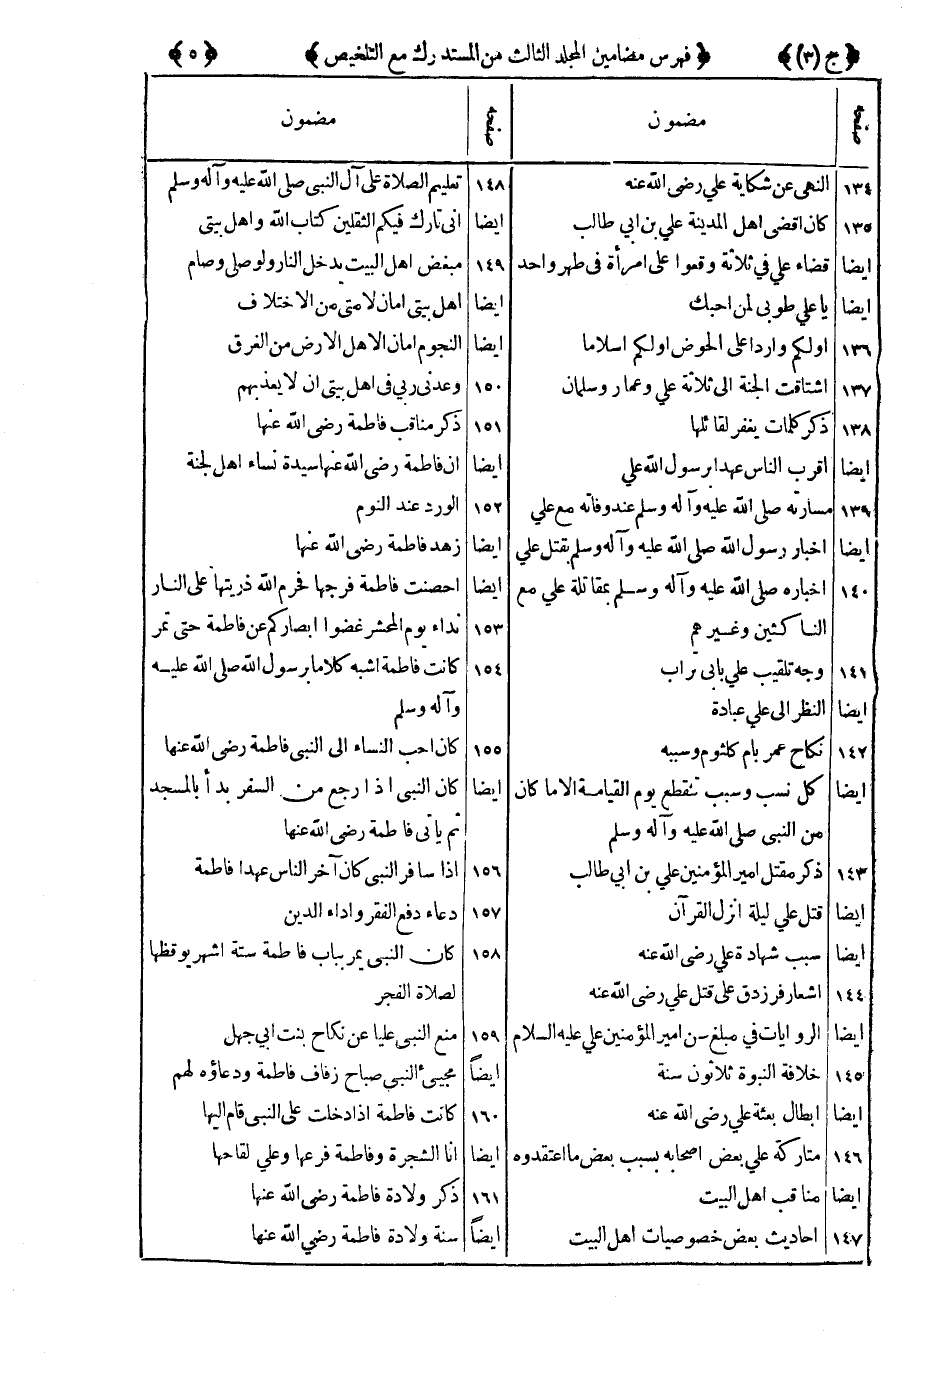 ﴿ ج (٣) ﴾ ﴿ فهرس مضامين المجلد الثالث من المستدرك مع التلخيص ﴾ ﴿ ٥ ﴾
صفحه مضمون
١٣٤ النهى عن شكاية علي رضى الله عنه
١٣٥ كان اقضى اهل المدينة علي بن ابي طالب
ايضا قضاء علي في ثلاثة وقعوا على امرأة فى طهر واحد
ايضا يا علي طوبى لمن احبك
١٣٦ اولكم واردا على الحوض اولكم اسلاما
١٣٧ اشتاقت الجنة الى ثلاثة علي وعمار وسلمان
١٣٨ ذكر كلمات يغفر لقائلها
ايضا اقرب الناس عهدا برسول الله علي
١٣٩ مسارته صلى الله عليه وآله وسلم عند وفاته مع علي
ايضا اخبار رسول الله صلى الله عليه وآله وسلم بقتل علي
١٤٠ اخباره صلى الله عليه وآله وسلم بمقاتلة علي مع
الناكثين وغيرهم
١٤١ وجه تلقيب علي بابى تراب
ايضا النظر الى علي عبادة
١٤٢ نكاح عمر بام كلثوم وسببه
ايضا كل نسب وسبب تنقطع يوم القيامة الا ما كان
من النبى صلى الله عليه وآله وسلم
١٤٣ ذكر مقتل امير المؤمنين علي بن ابي طالب
ايضا قتل علي ليلة انزل القرآن
ايضا سبب شهادة علي رضى الله عنه
١٤٤ اشعار فرزدق على قتل علي رضى الله عنه
ايضا الروايات في مبلغ سن امير المؤمنين علي عليه السلام
١٤٥ خلافة النبوة ثلاثون سنة
ايضا ابطال بعثة علي رضى الله عنه
١٤٦ متاركة علي بعض اصحابه بسبب بعض ما اعتقدوه
ايضا مناقب اهل البيت
١٤٧ احاديث بعض خصوصيات اهل البيت
صفحه مضمون
١٤٨ تعليم الصلاة على آل النبى صلى الله عليه وآله وسلم
ايضا انى تارك فيكم الثقلين كتاب الله واهل بيتى
١٤٩ مبغض اهل البيت يدخل النار ولو صلى وصام
ايضا اهل بيتى امان لامتى من الاختلاف
ايضا النجوم امان لاهل الارض من الغرق
١٥٠ وعدنى ربي فى اهل بيتى ان لا يعذبهم
١٥١ ذكر مناقب فاطمة رضى الله عنها
ايضا ان فاطمة رضى الله عنها سيدة نساء اهل الجنة
١٥٢ الورد عند النوم
ايضا زهد فاطمة رضى الله عنها
ايضا احصنت فاطمة فرجها فحرم الله ذريتها على النار
١٥٣ نداء يوم المحشر غضوا ابصاركم عن فاطمة حتى تمر
١٥٤ كانت فاطمة اشبه كلاما برسول الله صلى الله عليه
وآله وسلم
١٥٥ كان احب النساء الى النبى فاطمة رضى الله عنها
ايضا كان النبى اذا رجع من السفر بدأ بالمسجد
ثم ياتى فاطمة رضى الله عنها
١٥٦ اذا سافر النبى كان آخر الناس عهدا فاطمة
١٥٧ دعاء دفع الفقر واداء الدين
١٥٨ كان النبى يمر بباب فاطمة ستة اشهر يوقظها
لصلاة الفجر
١٥٩ منع النبى عليا عن نكاح بنت ابي جهل
ايضاً مجيئ النبى صباح زفاف فاطمة ودعاؤه لهم
١٦٠ كانت فاطمة اذا دخلت على النبى قام اليها
ايضا انا الشجرة وفاطمة فرعها وعلي لقاحها
١٦١ ذكر ولادة فاطمة رضى الله عنها
ايضاً سنة ولادة فاطمة رضي الله عنها